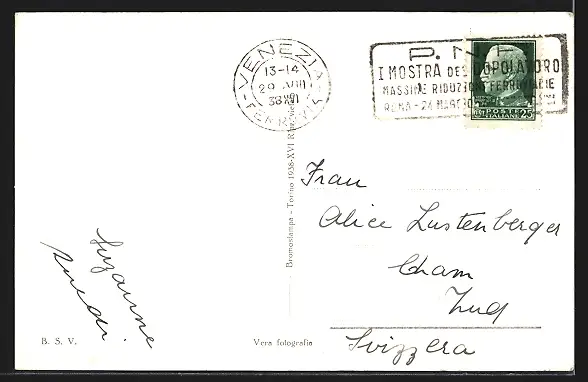 VENEZIA
13-14
29 VIII
38 XVI
FERROVIA
P.N.F.
I MOSTRA DEL DOPOLAVORO
MASSIME RIDUZIONI FERROVIARIE
ROMA - 24 MAGGIO
POSTE
ITALIANE 25
Frau
Alice Lustenberger
Cham
Zug
Svizzera
Suzanne
Bromostampa - Torino 1938-XVI
B. S. V.
Vera fotografia